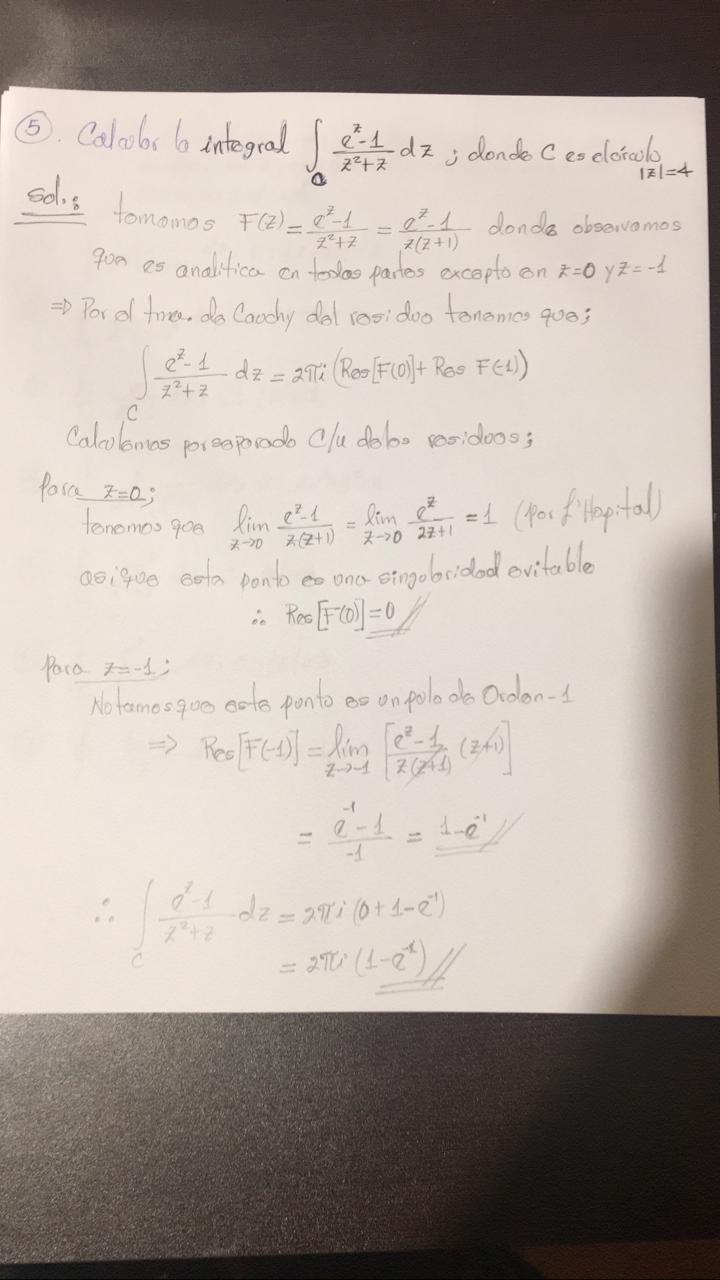 ⑤. Calcular la integral ∫_C (e^z-1)/(z²+z) dz ; donde C es el círculo |z|=4
Sol.: tomamos F(z) = (e^z-1)/(z²+z) = (e^z-1)/(z(z+1)) donde observamos
que es analítica en todas partes excepto en z=0 y z=-1
⇒ Por el tma. de Cauchy del residuo tenemos que;
∫_C (e^z-1)/(z²+z) dz = 2πi (Res[F(0)] + Res F(-1))
Calculemos por separado c/u de los residuos;
Para z=0;
tenemos que lim_{z→0} (e^z-1)/(z(z+1)) = lim_{z→0} e^z/(2z+1) = 1 (por L'Hopital)
asi que este punto es una singularidad evitable
∴ Res[F(0)] = 0 //
Para z=-1;
Notamos que este punto es un polo de Orden-1
⇒ Res[F(-1)] = lim_{z→-1} [(e^z-1)/(z(z+1)) (z+1)]
= (e^-1 - 1)/-1 = 1-e^-1 //
∴ ∫_C (e^z-1)/(z²+z) dz = 2πi (0+1-e^-1)
= 2πi (1-e^-1) //